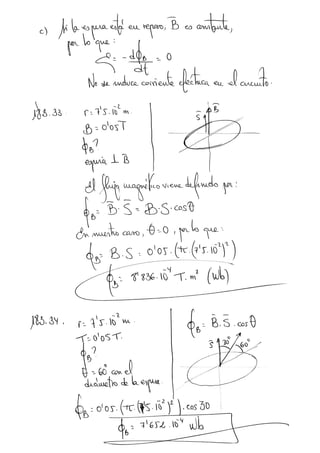 c) Si la espira está en reposo, B̅ es constante,
por lo que:
ε = - dΦ_B/dt = 0
No se induce corriente eléctrica en el circuito.
183.33. r = 7'5·10⁻² m.
B = 0'05 T
Φ_B?
espira ⊥ B
S̅ B̅
el flujo magnético viene definido por:
Φ_B = B̅·S̅ = B·S·cosθ
En nuestro caso, θ=0, por lo que:
Φ_B = B·S = 0'05·(π·(7'5·10⁻²)²)
Φ_B = 8'836·10⁻⁴ T·m² (Wb)
183.34. r = 7'5·10⁻² m.
T = 0'05 T.
Φ_B?
θ = 60° con el
diámetro de la espira.
Φ_B = B̅·S̅·cosθ
S̅ 30° 60°
Φ_B = 0'05·(π·(7'5·10⁻²)²)·cos 30
Φ_B = 7'652·10⁻⁴ Wb